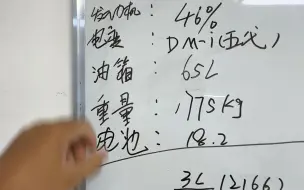 发动机: 46%
电混: DM-i(五代)
油箱: 65L
重量: 1775kg
电池: 18.2
3L 12166)